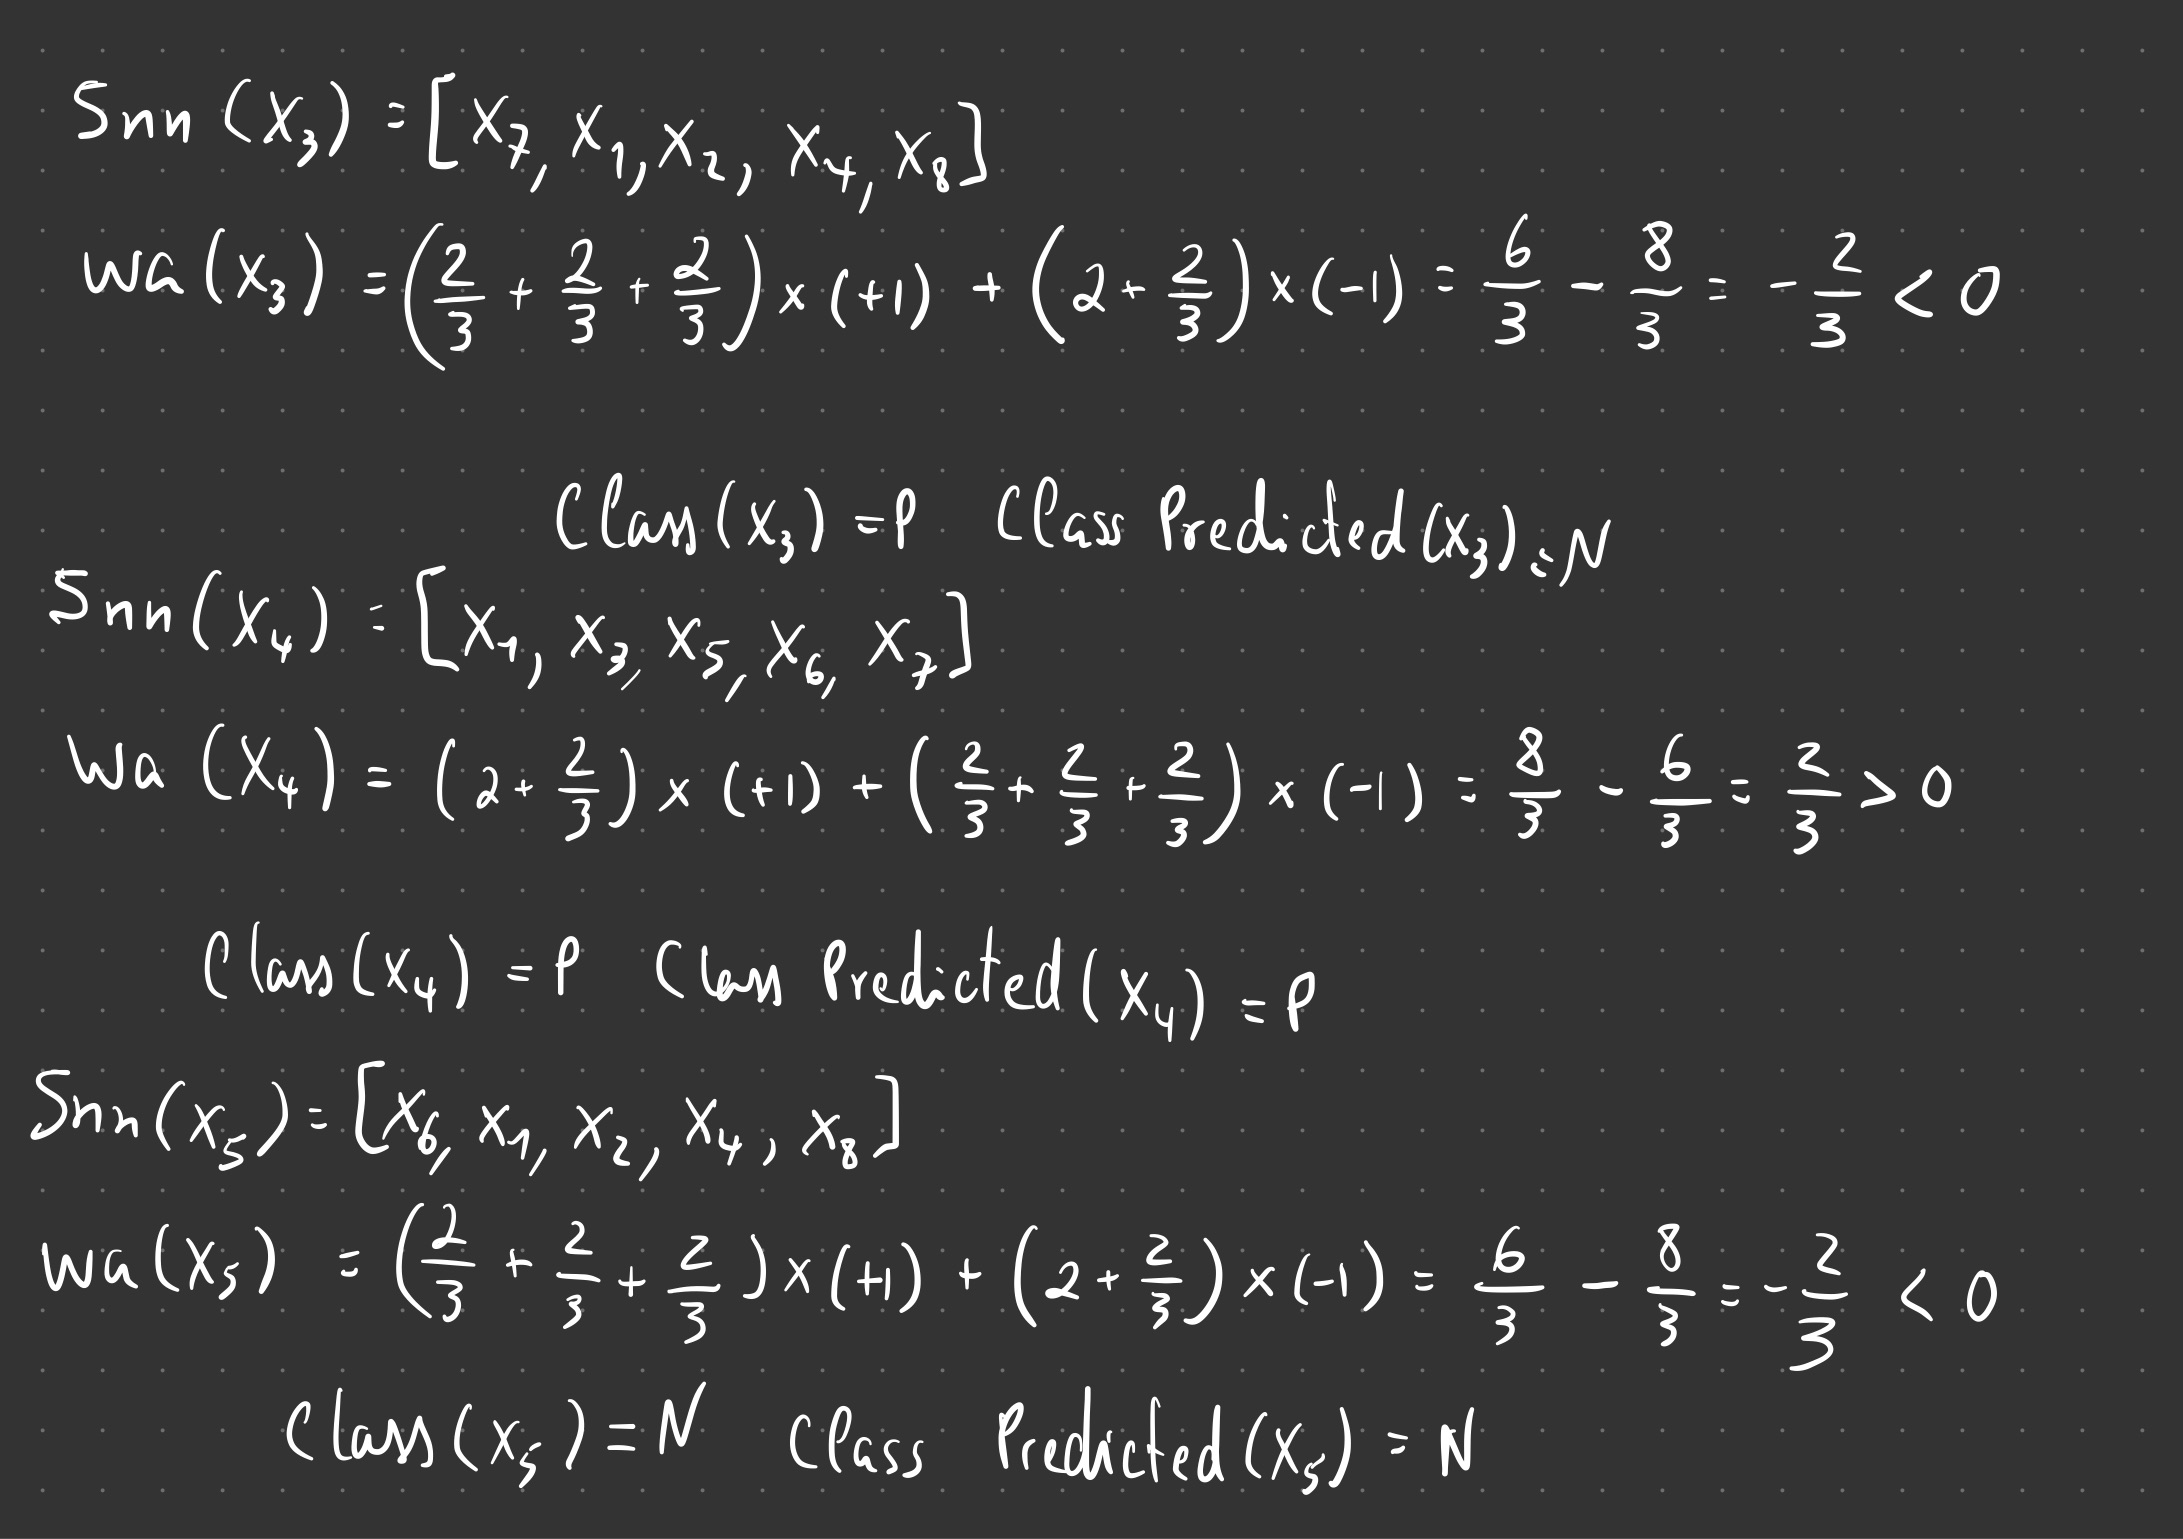 Snn (X₃) = [X₇, X₁, X₂, X₄, X₈]
wa (X₃) = (2/3 + 2/3 + 2/3) x (+1) + (2 + 2/3) x (-1) = 6/3 - 8/3 = -2/3 < 0
Class (X₃) = P Class Predicted (X₃) = N
Snn (X₄) = [X₁, X₃, X₅, X₆, X₇]
wa (X₄) = (2 + 2/3) x (+1) + (2/3 + 2/3 + 2/3) x (-1) = 8/3 - 6/3 = 2/3 > 0
Class (X₄) = P Class Predicted (X₄) = P
Snn (X₅) = [X₆, X₁, X₂, X₄, X₈]
wa (X₅) = (2/3 + 2/3 + 2/3) x (+1) + (2 + 2/3) x (-1) = 6/3 - 8/3 = -2/3 < 0
Class (X₅) = N Class Predicted (X₅) = N